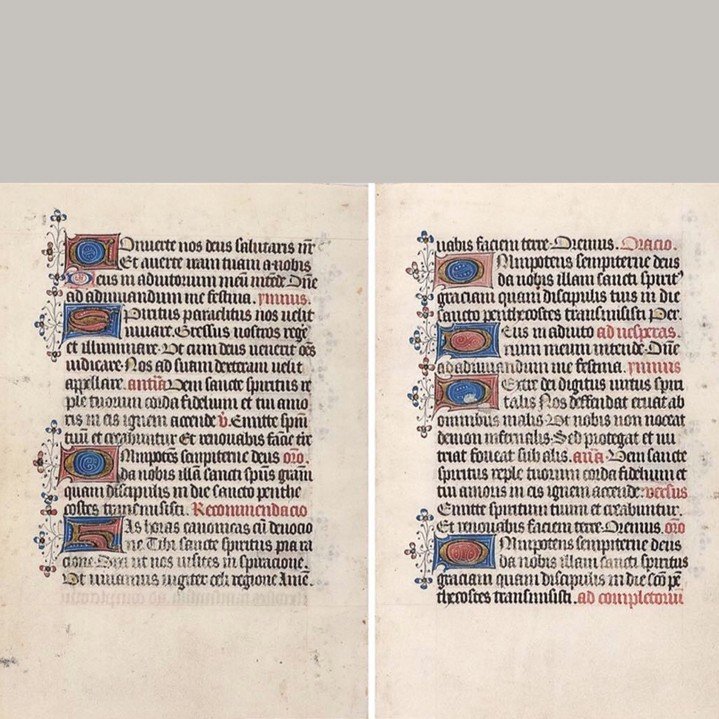 Onuerte nos deus salutaris nr̄
Et auerte iram tuam a nobis
Deus in adiutorium meū intēde Dn̄e
ad adiuuandum me festina. ymnus.
Spiritus paraclitus nos uelit
iuuare. Gressus nostros rege
et illuminare. Ut cum deus uenerit oēs
iudicare. Nos ad suam dexteram uelit
appellare. antiā. Ueni sancte spiritus re
ple tuorum corda fidelium et tui amo
ris in eis ignem accende v̄. Emitte spm̄
tuū et creabuntur Et renouabis faciē tr̄e
Omnipotēs sempiterne deus or̄o.
da nobis illā sancti spūs grām
quam discipulis in die sancto penthe
costes transmisisti. Recommendacio
Has horas canonicas cū deuocio
ne. Tibi sancte spiritus pia ra
cione. Dixi ut nos uisites in spiracione.
Et uiuamus iugiter celi regione Amē.
uabis faciem terre. Oremus. Oracio.
Omnipotens sempiterne deus
da nobis illam sancti spirit9
graciam quam discipulis tuis in die
sancto penthecostes transmisisti Per.
Deus in adiuto ad uesperas.
rium meum intende. Dn̄e
ad adiuuandum me festina. ymnus
Dextre dei digitus uirtus spiri
talis Nos deffendat eruat ab
omnibus malis. Ut nobis non noceat
demon infernalis. Sed protegat et nu
triat foueat sub alis. an̄a. Ueni sancte
spiritus reple tuorum corda fidelium et
tui amoris in eis ignem accende. versus
Emitte spiritum tuum et creabuntur.
Et renouabis faciem terre. Oremus. or̄o
Omnipotens sempiterne deus
da nobis illam sancti spiritus
graciam quam discipulis in die scō pē
thecostes transmisisti. ad completoriū